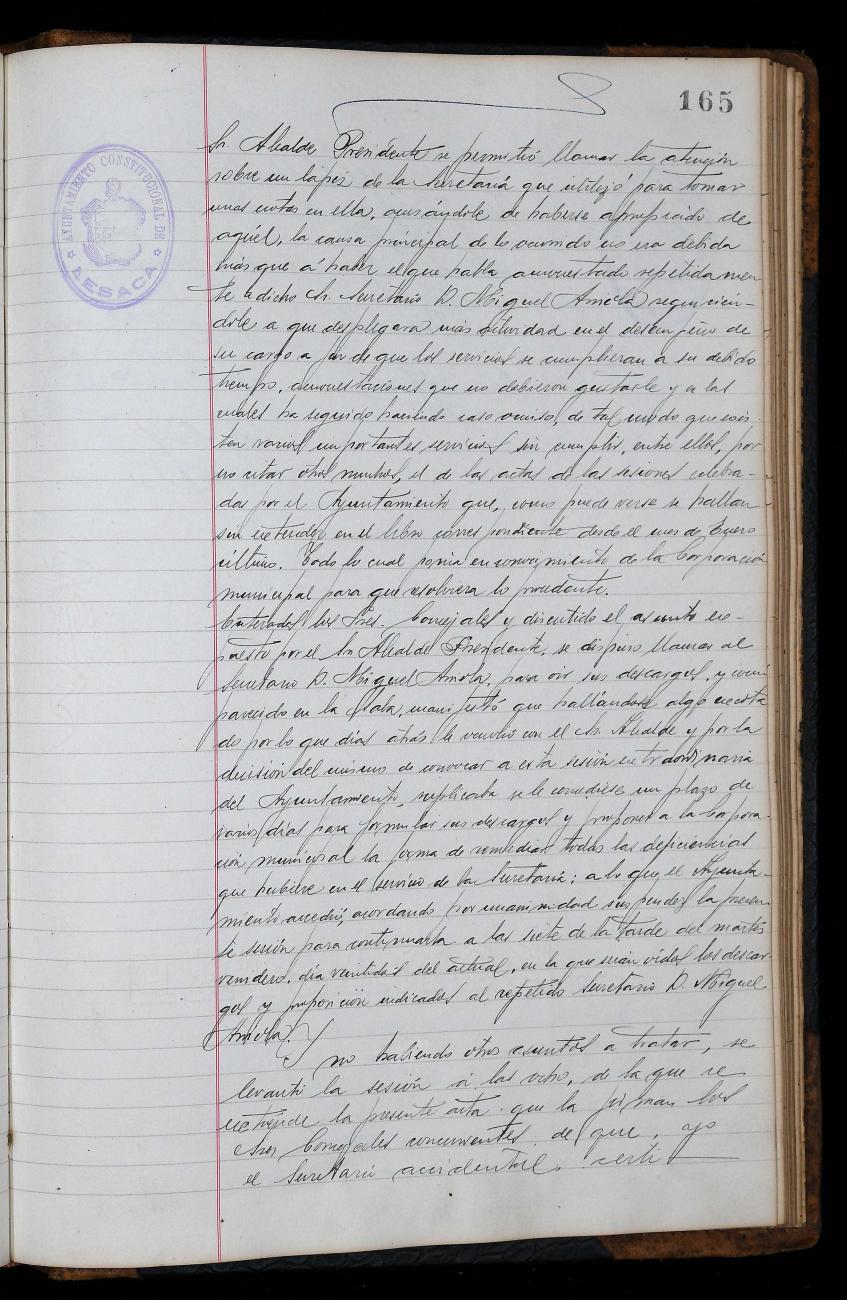 165
AYUNTAMIENTO CONSTITUCIONAL DE LESACA
Sr. Alcalde Presidente se permitió llamar la atención
sobre un lápiz de la Secretaría que utilizó para tomar
unas notas en ella, acusándole de haberse apropiado de
aquél, la causa principal de lo ocurrido no era debida
más que á haber el que habla amonestado repetidamen
te a dicho Sr. Secretario D. Miguel Arriola requirién-
dole a que desplegara más actividad en el desempeño de
su cargo a fin de que los servicios se cumplieran a su debido
tiempo, amonestaciones que no debieron gustarle y a las
cuales ha seguido haciendo caso omiso, de tal modo que exis
ten varios importantes servicios sin cumplir, entre ellos, por
no citar otros muchos, el de las actas de las sesiones celebra-
das por el Ayuntamiento que, como puede verse se hallan
sin extender en el libro correspondiente desde el mes de Enero
último. Todo lo cual ponía en conocimiento de la Corporación
municipal para que resolviera lo procedente.
Enterados los Sres. Concejales y discutido el asunto ex-
puesto por el Sr. Alcalde Presidente, se dispuso llamar al
Secretario D. Miguel Arriola, para oir sus descargos, y com
parecido en la Sala, manifestó que hallándose algo excita
do por lo que días atrás le ocurrió con el Sr. Alcalde y por la
decisión del mismo de convocar a esta sesión extraordinaria
del Ayuntamiento, suplicaba se le concediese un plazo de
varios días para formular sus descargos y proponer a la Corpora-
ción municipal la forma de remediar todas las deficiencias
que hubiere en el servicio de la Secretaría; a lo que el Ayunta-
miento accedió, acordando por unanimidad suspender la presen
te sesión para continuarla a las siete de la tarde del martes
venidero, día veintidós del actual, en la que serán oídos los descar-
gos y proposición indicados al repetido Secretario D. Miguel
Arriola.
Y no habiendo otros asuntos a tratar, se
levantó la sesión á las ocho, de la que se
extiende la presente acta que la firman los
Sres Concejales concurrentes de que, yo
el Secretario accidental, certi